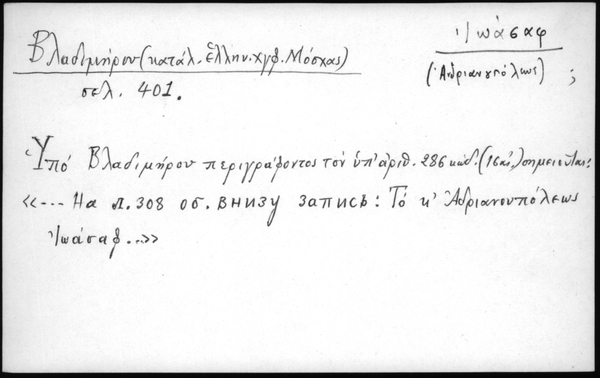 Βλαδιμήρου (κατάλ. ἑλλην. χγφ. Μόσχας)
σελ. 401.
Ἰωάσαφ
(Ἀδριανουπόλεως) ;
Ὑπό Βλαδιμήρου περιγράφοντος τὸν ὑπ' ἀριθ. 286 κώδ. (16 αἰ.) σημειοῦται:
«--- На л. 308 об. внизу запись: Τό κ' Ἀδριανουπόλεως
Ἰωάσαφ...»